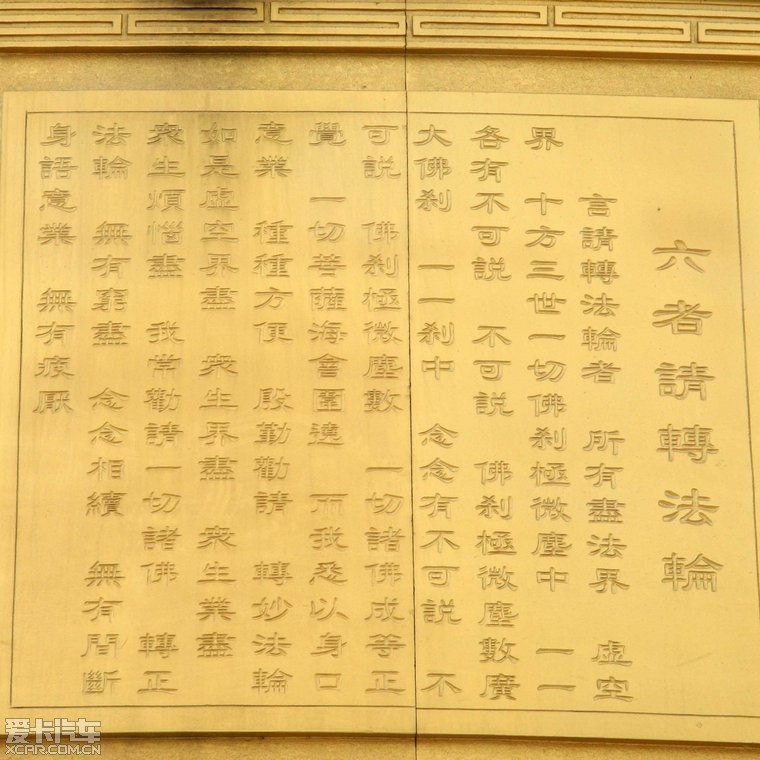 六者請轉法輪
言請轉法輪者 所有盡法界 虛空
界 十方三世一切佛刹極微塵中 一一
各有不可説 不可説 佛刹極微塵數廣
大佛刹 一一刹中 念念有不可説 不
可説 佛刹極微塵數 一切諸佛成等正
覺 一切菩薩海會圍遶 而我悉以身口
意業 種種方便 殷勤勸請 轉妙法輪
如是虛空界盡 衆生界盡 衆生業盡
衆生煩惱盡 我常勸請一切諸佛 轉正
法輪 無有窮盡 念念相續 無有間斷
身語意業 無有疲厭
爱卡汽车
XCAR.COM.CN